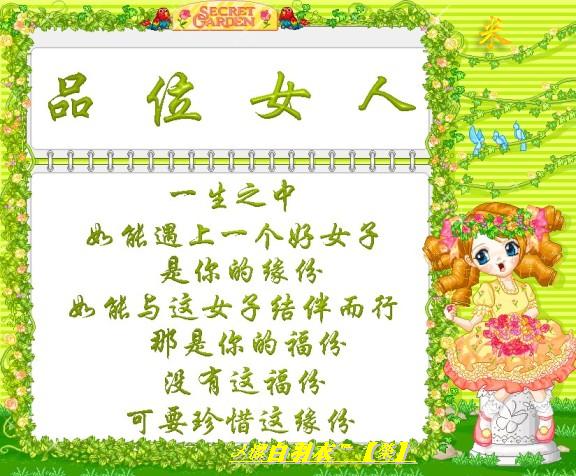 SECRET GARDEN
品位女人
一生之中
如能遇上一个好女子
是你的缘份
如能与这女子结伴而行
那是你的福份
没有这福份
可要珍惜这缘份